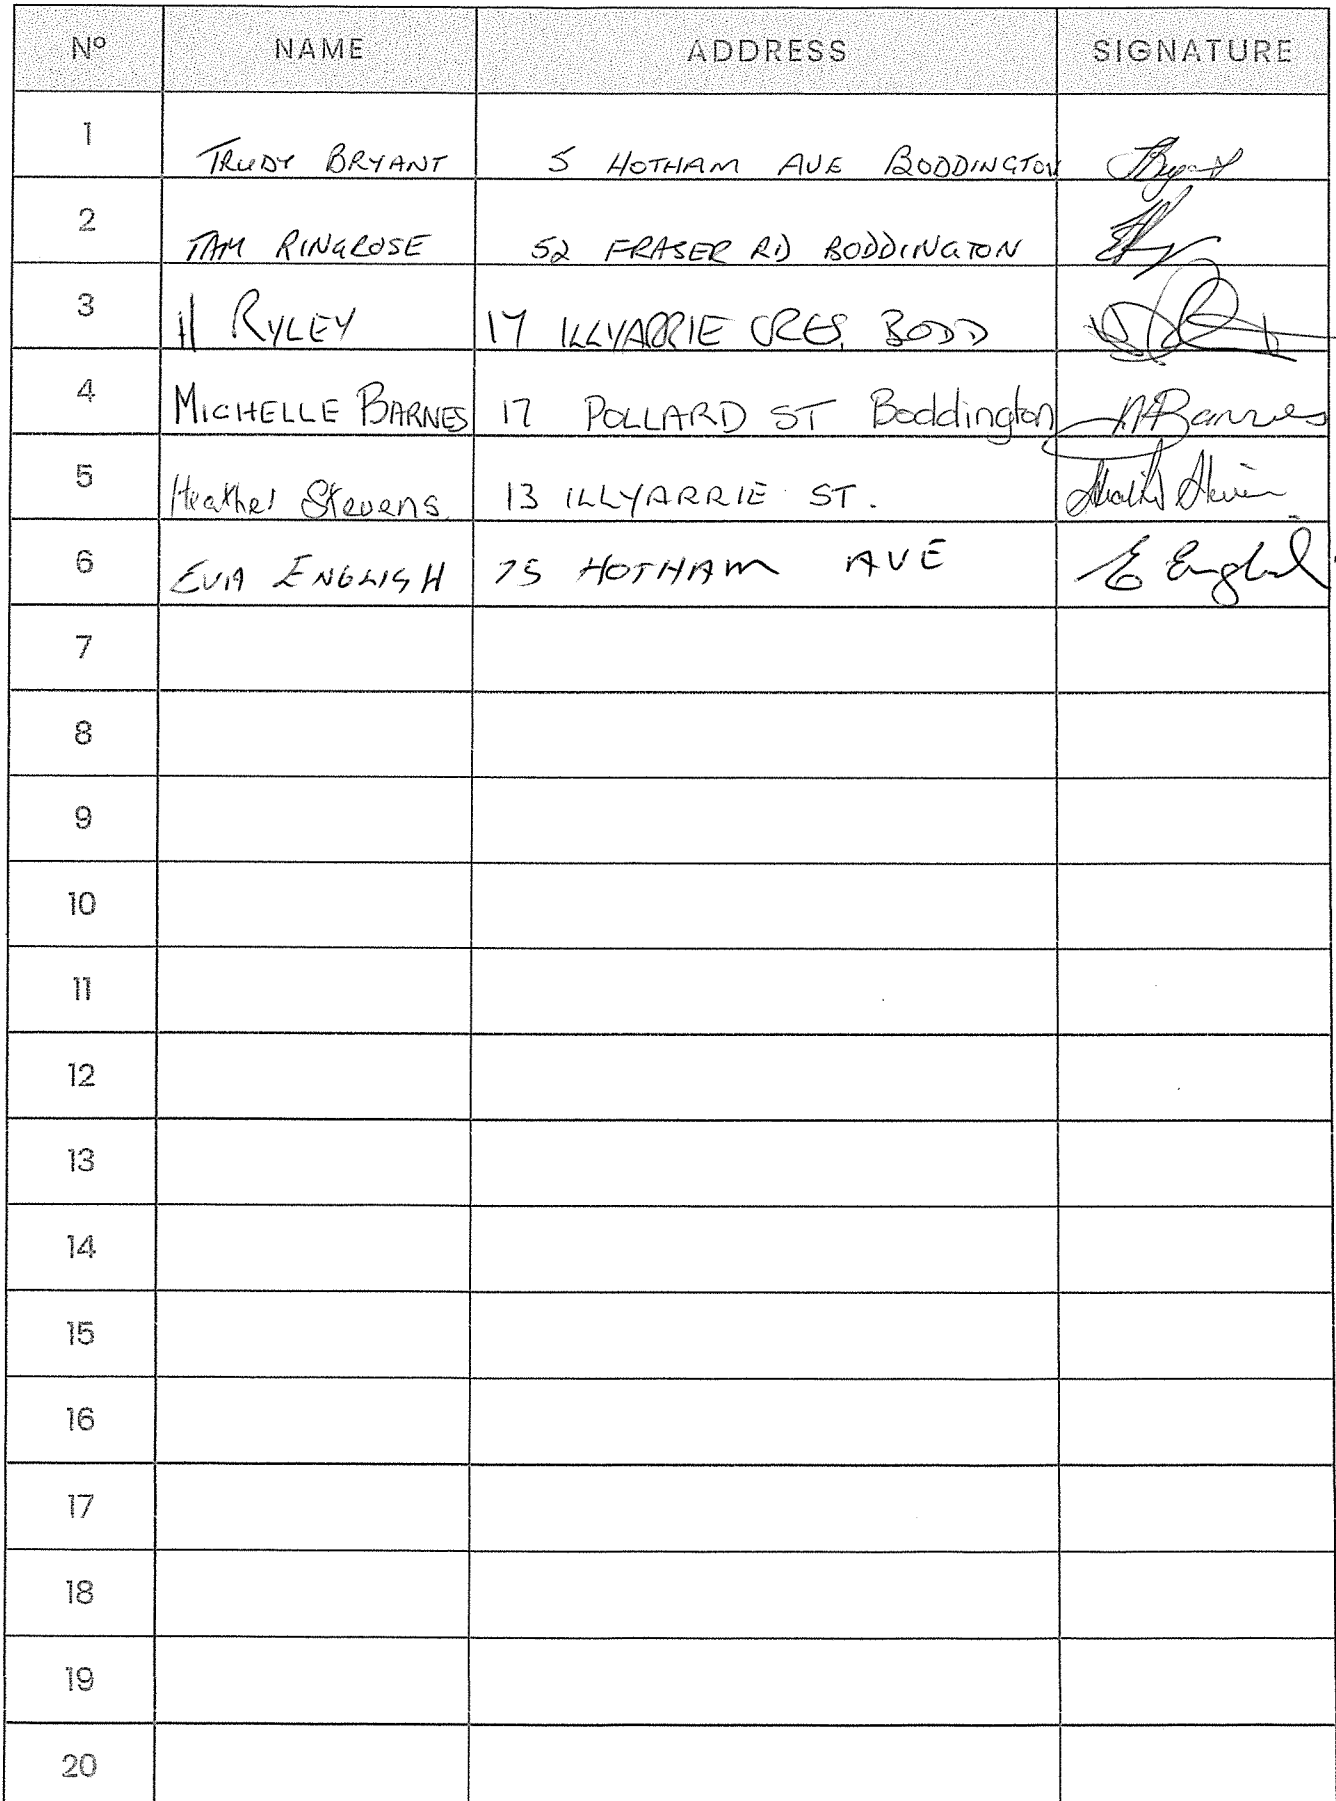 Nº NAME ADDRESS SIGNATURE
1 TRUDY BRYANT 5 HOTHAM AVE BODDINGTON TBryant
2 TAM RINGROSE 52 FRASER RD BODDINGTON
3 H RYLEY 17 ILLYARRIE CRES, BODD
4 MICHELLE BARNES 17 POLLARD ST Boddington MBarnes
5 Heather Stevens 13 ILLYARRIE ST.
6 EVA ENGLISH 75 HOTHAM AVE E English
7
8
9
10
11
12
13
14
15
16
17
18
19
20